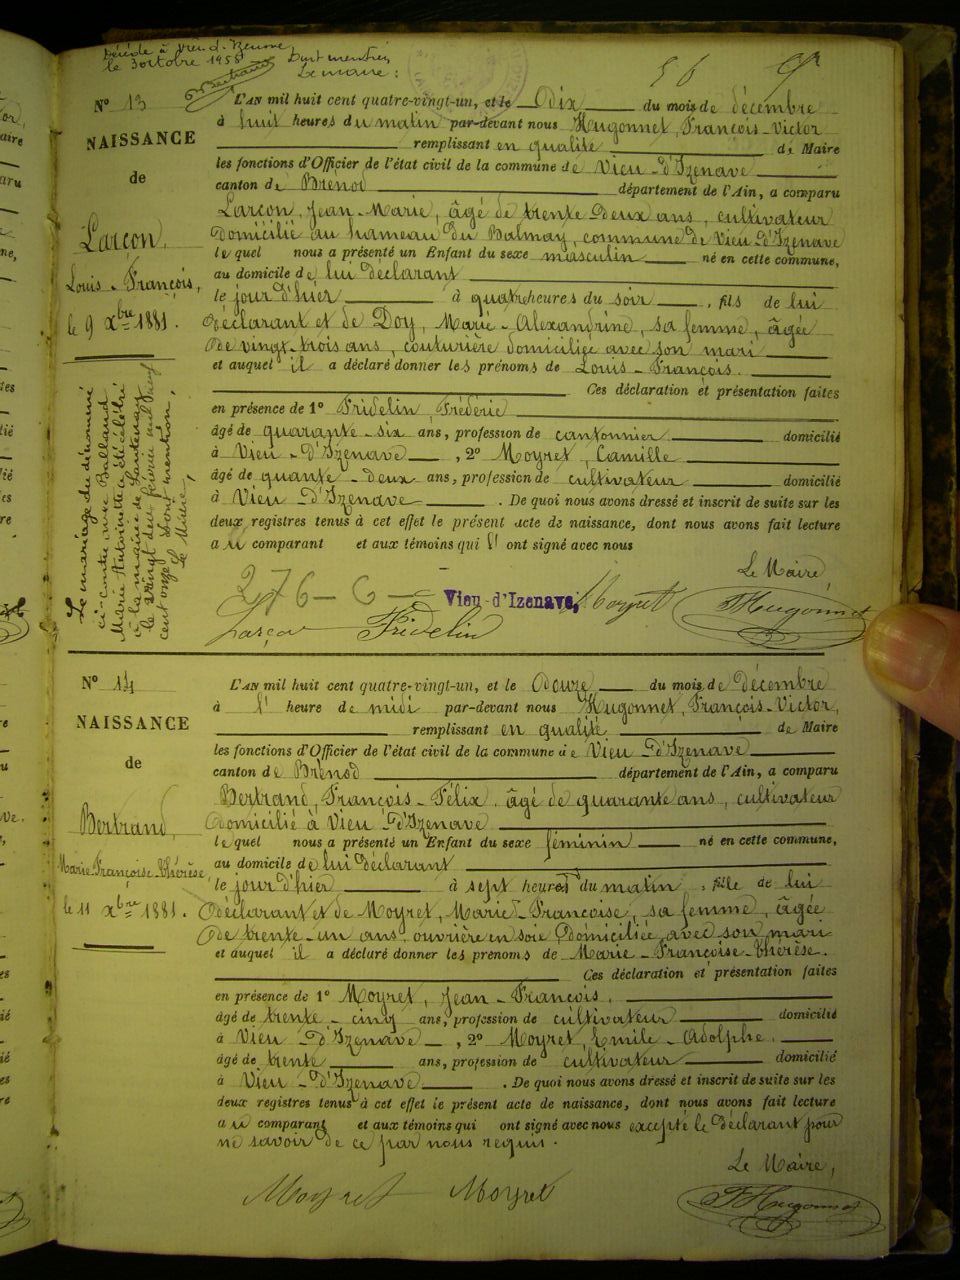 Décédé à Vieu-d'Izenave
le 3 octobre 1958
Dont mention
Le maire :
56
N° 13
NAISSANCE
de
Larçon,
Louis-François,
le 9 Xbre 1881.
L'AN mil huit cent quatre-vingt-un, et le Dix du mois de décembre
à huit heures du matin par-devant nous Hugonnet, François-Victor
remplissant en qualité de Maire
les fonctions d'Officier de l'état civil de la commune de Vieu-d'Izenave
canton de Brénod département de l'Ain, a comparu
Larçon, Jean-Marie, âgé de trente deux ans, cultivateur
domicilié au hameau du Balmay, commune de Vieu-d'Izenave
lequel nous a présenté un Enfant du sexe masculin né en cette commune,
au domicile de lui déclarant
le jour d'hier à quatre heures du soir, fils de lui
déclarant et de Doy, Marie-Alexandrine, sa femme, âgée
de vingt-trois ans, couturière domiciliée avec son mari
et auquel il a déclaré donner les prénoms de Louis-François.
Ces déclaration et présentation faites
en présence de 1° Fridelin, Fréderic
âgé de quarante-six ans, profession de cantonnier domicilié
à Vieu-d'Izenave, 2° Moyret, Camille
âgé de quarante-deux ans, profession de cultivateur domicilié
à Vieu-d'Izenave. De quoi nous avons dressé et inscrit de suite sur les
deux registres tenus à cet effet le présent acte de naissance, dont nous avons fait lecture
au comparant et aux témoins qui l' ont signé avec nous
Le Maire,
276-C-
Vieu-d'Izenave,
Moyret
FHugonnet
Larçon
Fridelin
Le mariage du dénommé
ci-contre avec Balland
Marie Antoinette a été célébré
à la mairie de Lantenay
le vingt deux février mil neuf
cent onze Dont mention,
Le Maire,
N° 14
NAISSANCE
de
Bertrand,
Marie-Françoise-Thérèse,
le 11 Xbre 1881.
L'AN mil huit cent quatre-vingt-un, et le Douze du mois de Décembre
à l' heure de midi par-devant nous Hugonnet, François-Victor,
remplissant en qualité de Maire
les fonctions d'Officier de l'état civil de la commune de Vieu-d'Izenave
canton de Brénod département de l'Ain, a comparu
Bertrand, François-Félix, âgé de quarante ans, cultivateur
domicilié à Vieu-d'Izenave
lequel nous a présenté un Enfant du sexe féminin né en cette commune,
au domicile de lui déclarant
le jour d'hier à sept heures du matin, fille de lui
déclarant et de Moyret, Marie-Françoise, sa femme, âgée
de trente-un ans, ouvrière en soie domiciliée avec son mari
et auquel il a déclaré donner les prénoms de Marie-Françoise-Thérèse.
Ces déclaration et présentation faites
en présence de 1° Moyret, Jean-François.
âgé de trente-cinq ans, profession de cultivateur domicilié
à Vieu-d'Izenave, 2° Moyret, Emile-Adolphe.
âgé de trente ans, profession de cultivateur domicilié
à Vieu-d'Izenave. De quoi nous avons dressé et inscrit de suite sur les
deux registres tenus à cet effet le présent acte de naissance, dont nous avons fait lecture
au comparant et aux témoins qui ont signé avec nous excepté le déclarant pour
ne savoir de ce par nous requis.
Le Maire,
Moyret Moyret
FHugonnet